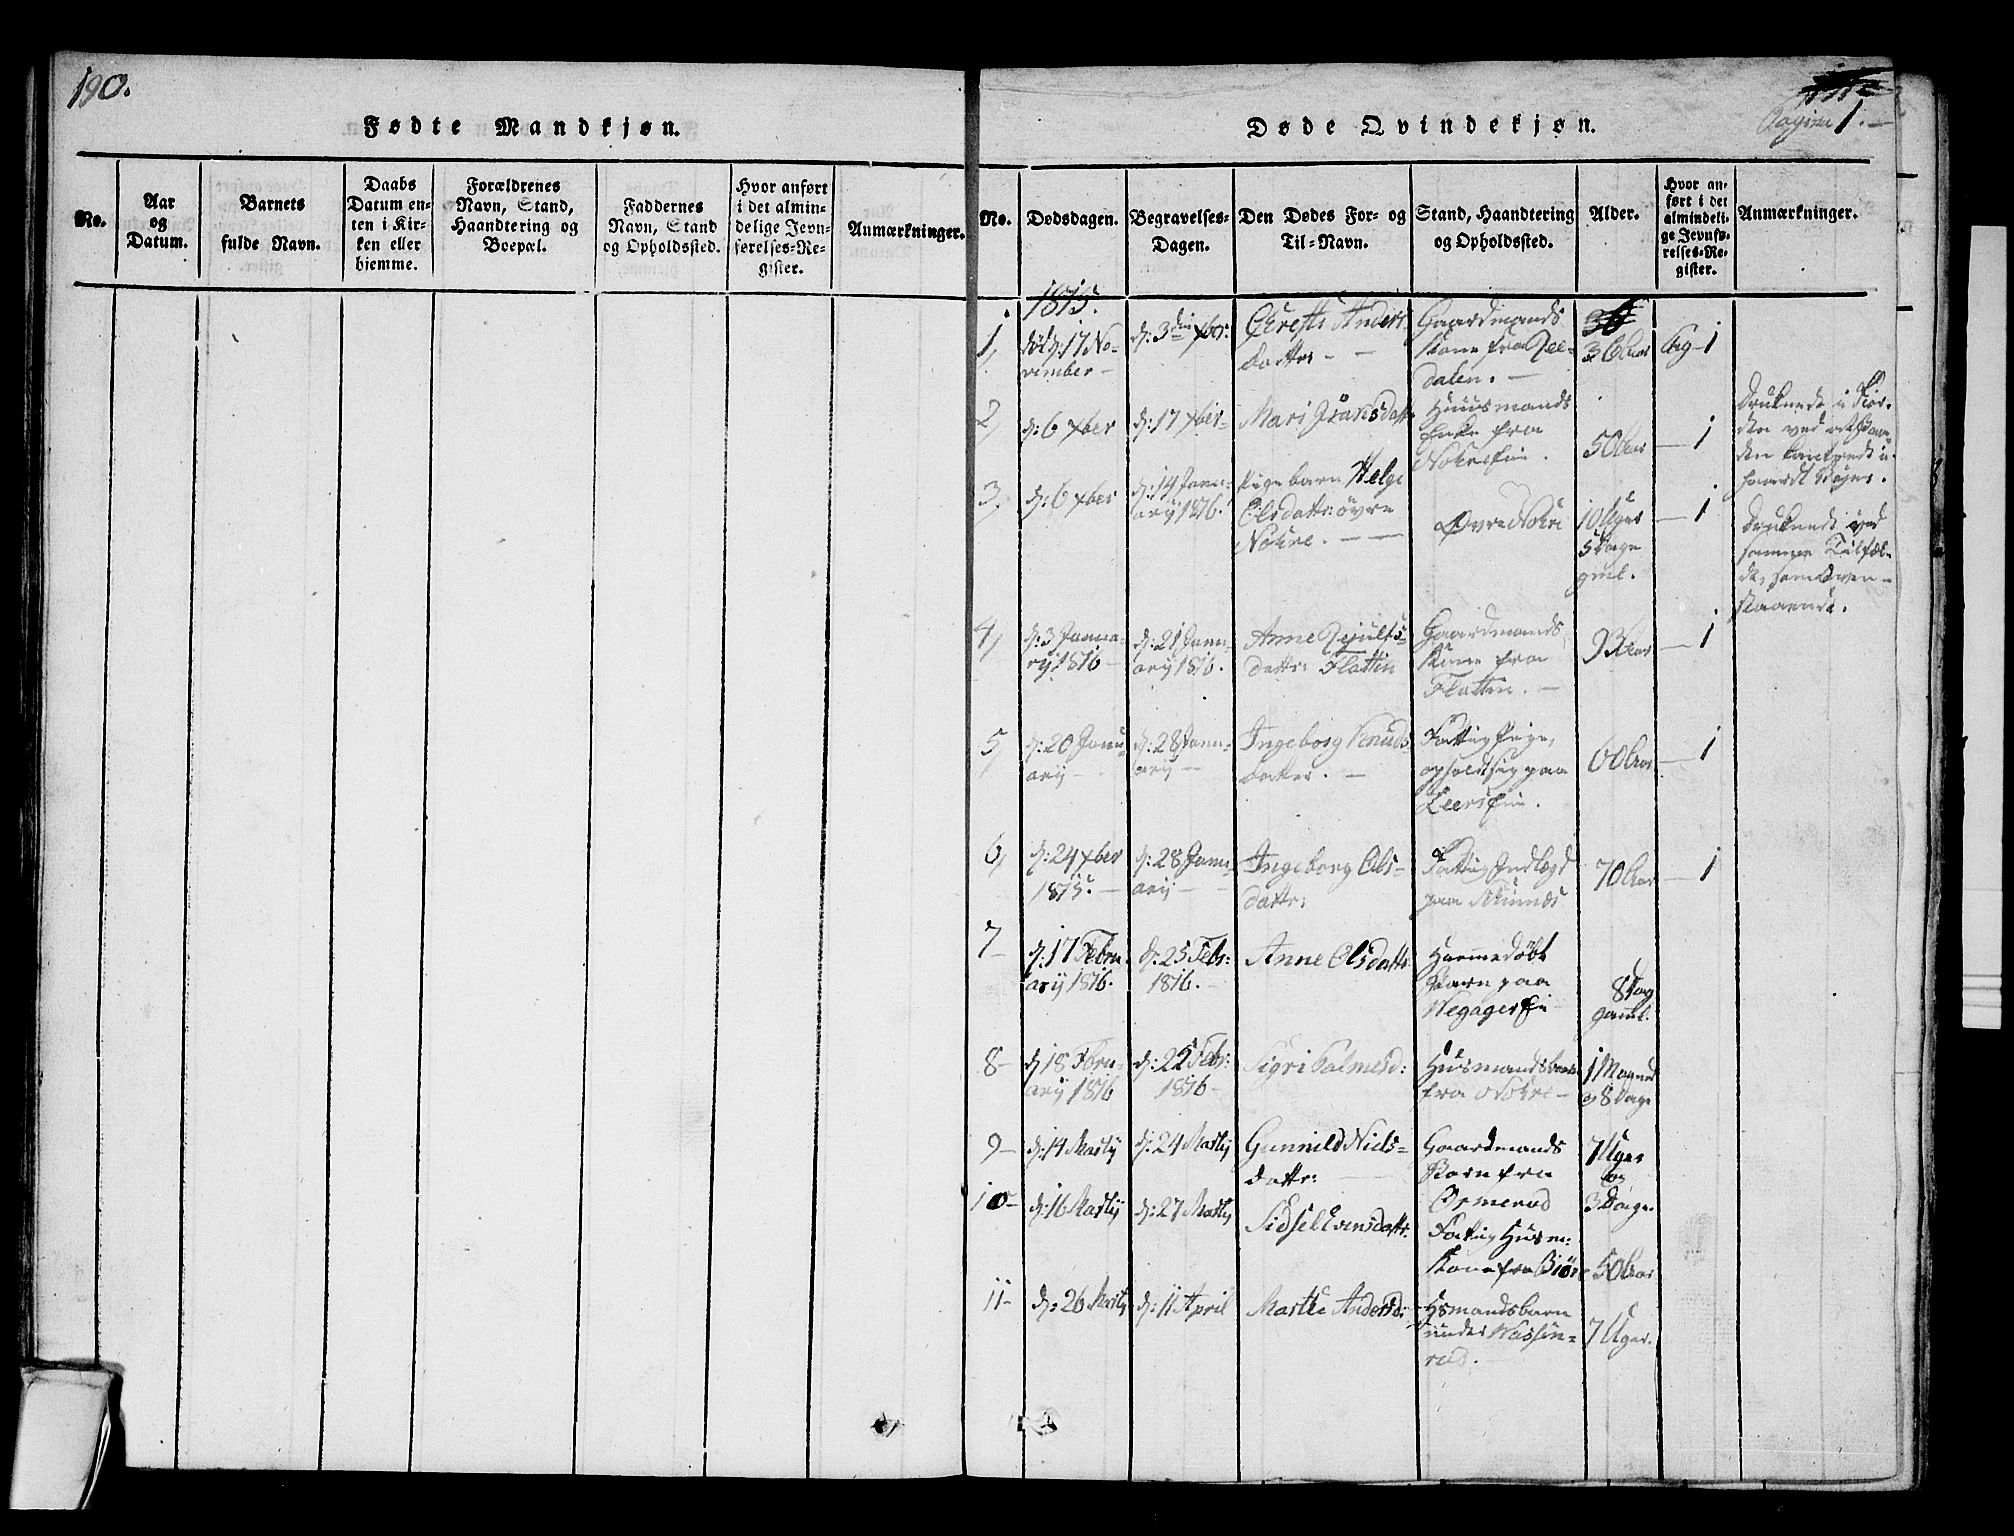 190.
Fødte Mandkjøn.
No.
Aar
og
Datum.
Barnets
fulde Navn.
Daabs
Datum en-
ten i Kir-
ken eller
hjemme.
Forældrenes
Navn, Stand,
Haandtering og
Boepæl.
Faddernes
Navn, Stand
og Opholdssted.
Hvor anført
i det almin-
delige Jevn-
førelses-Re-
gister.
Anmærkninger.
Pagina 1.
Døde Qvindekjøn.
No.
Dødsdagen.
Begravelses-
Dagen.
Den Dødes For- og
Til-Navn.
Stand, Haandtering
og Opholdssted.
Alder.
Hvor an-
ført i det
almindeli-
ge Jevnfø-
relses-Re-
gister.
Anmærkninger.
1815.
1,
død d: 17 No-
vember
d: 3die xbr:
Anders-
datter
Gaardmands
Kone fra
dalen.
36 Aar
Pag 1
2,
d: 6 xber
d: 17 xber
Mari
Huusmands
Enke fra
50 Aar
1
druknede i Fior-
den ved at Baa-
den kantrede i
haardt Vejer.
3,
d: 6 xber
d: 14 Janu-
arij 1816.
Pigebarn Helge
Olsdattr: øvre
Nokre.
Øvre Nokre
10 Uger
5 Dage
gml.
1
Druknede ved
samme Tilfæl-
de, som oven-
staaende.
4,
d: 3 Janua-
rij 1816
d: 21 Janu-
arij 1816.
Anne
dattr: Flattin
Gaardmands
Kone fra
Flatten.
93 Aar
1
5,
d: 20 Janu-
arij
d: 28 Janu-
arij
Ingeborg Knuds-
datter.
Fattig Pige,
opholdt sig paa
60 Aar
1
6,
d: 24 xber
1815.
d: 28 Janu-
arij
Ingeborg Ols-
dattr:
Fattig Indlagd
paa
70 Aar
1
7
d: 17 Febru-
arij 1816.
d: 25 Febr:
1816.
Anne Olsdattr
Hiemmedøbt
Barn paa
8 Dag
gaml.
8
d: 18 Febru-
arij 1816
d: 25 Febr:
1816
Sigri Palmesd:
Huusmandsbarn
fra Nokre
1 Maaned
og 8 Dage
9
d: 14 Martij
d: 24 Martij
Gunnild Niels-
dattr:
Gaardmands
Barn fra
Ormerud
7 Uger
og
3 Dage.
10
d: 16 Martij
d: 27 Martij
Sidsel Evensdattr.
Fattig Husm:
Kone fra
50 Aar
11
d: 26 Martij
d: 11 April
Marthe Andersd:
Hsmandsbarn
under
rud.
7 Uger.